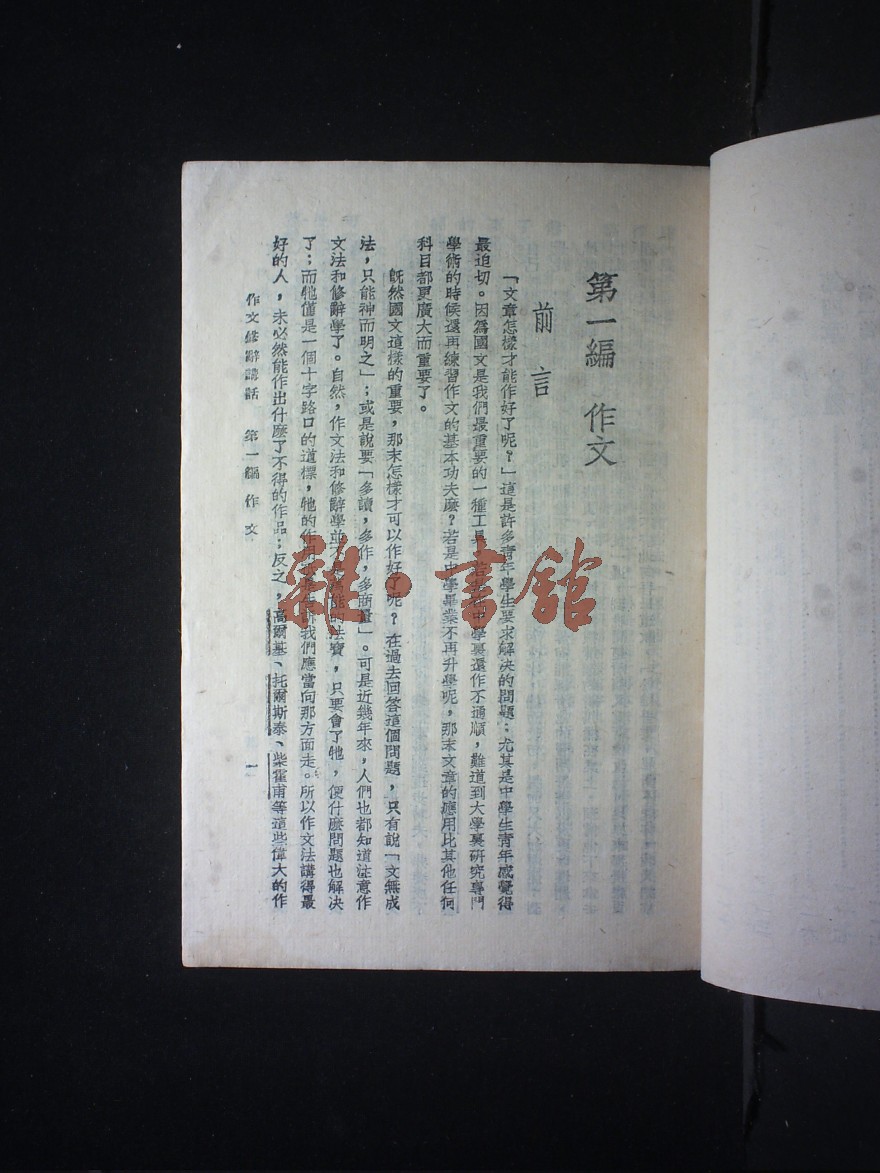 第一編 作文
前言
「文章怎樣才能作好了呢？」這是許多青年學生要求解決的問題；尤其是中學生青年感覺得
最迫切。因為國文是我們最重要的一種工具，若是在中學裏還作不通順，難道到大學裏研究專門
學術的時候還再練習作文的基本功夫麼？若是中學畢業不再升學呢，那末文章的應用比其他任何
科目都更廣大而重要了。
既然國文這樣的重要，那末怎樣才可以作好了呢？在過去回答這個問題，只有說「文無成
法，只能神而明之」；或是說要「多讀，多作，多商量」。可是近幾年來，人們也都知道注意作
文法和修辭學了。自然，作文法和修辭學並不是萬能的法寶，只要會了牠，便什麼問題也解決
了；而牠僅是一個十字路口的道標，牠的作用是告訴我們應當向那方面走。所以作文法講得最
好的人，未必然能作出什麼了不得的作品；反之，高爾基、托爾斯泰、柴霍甫等這些偉大的作
作文修辭講話 第一編 作文 一
雜·書館